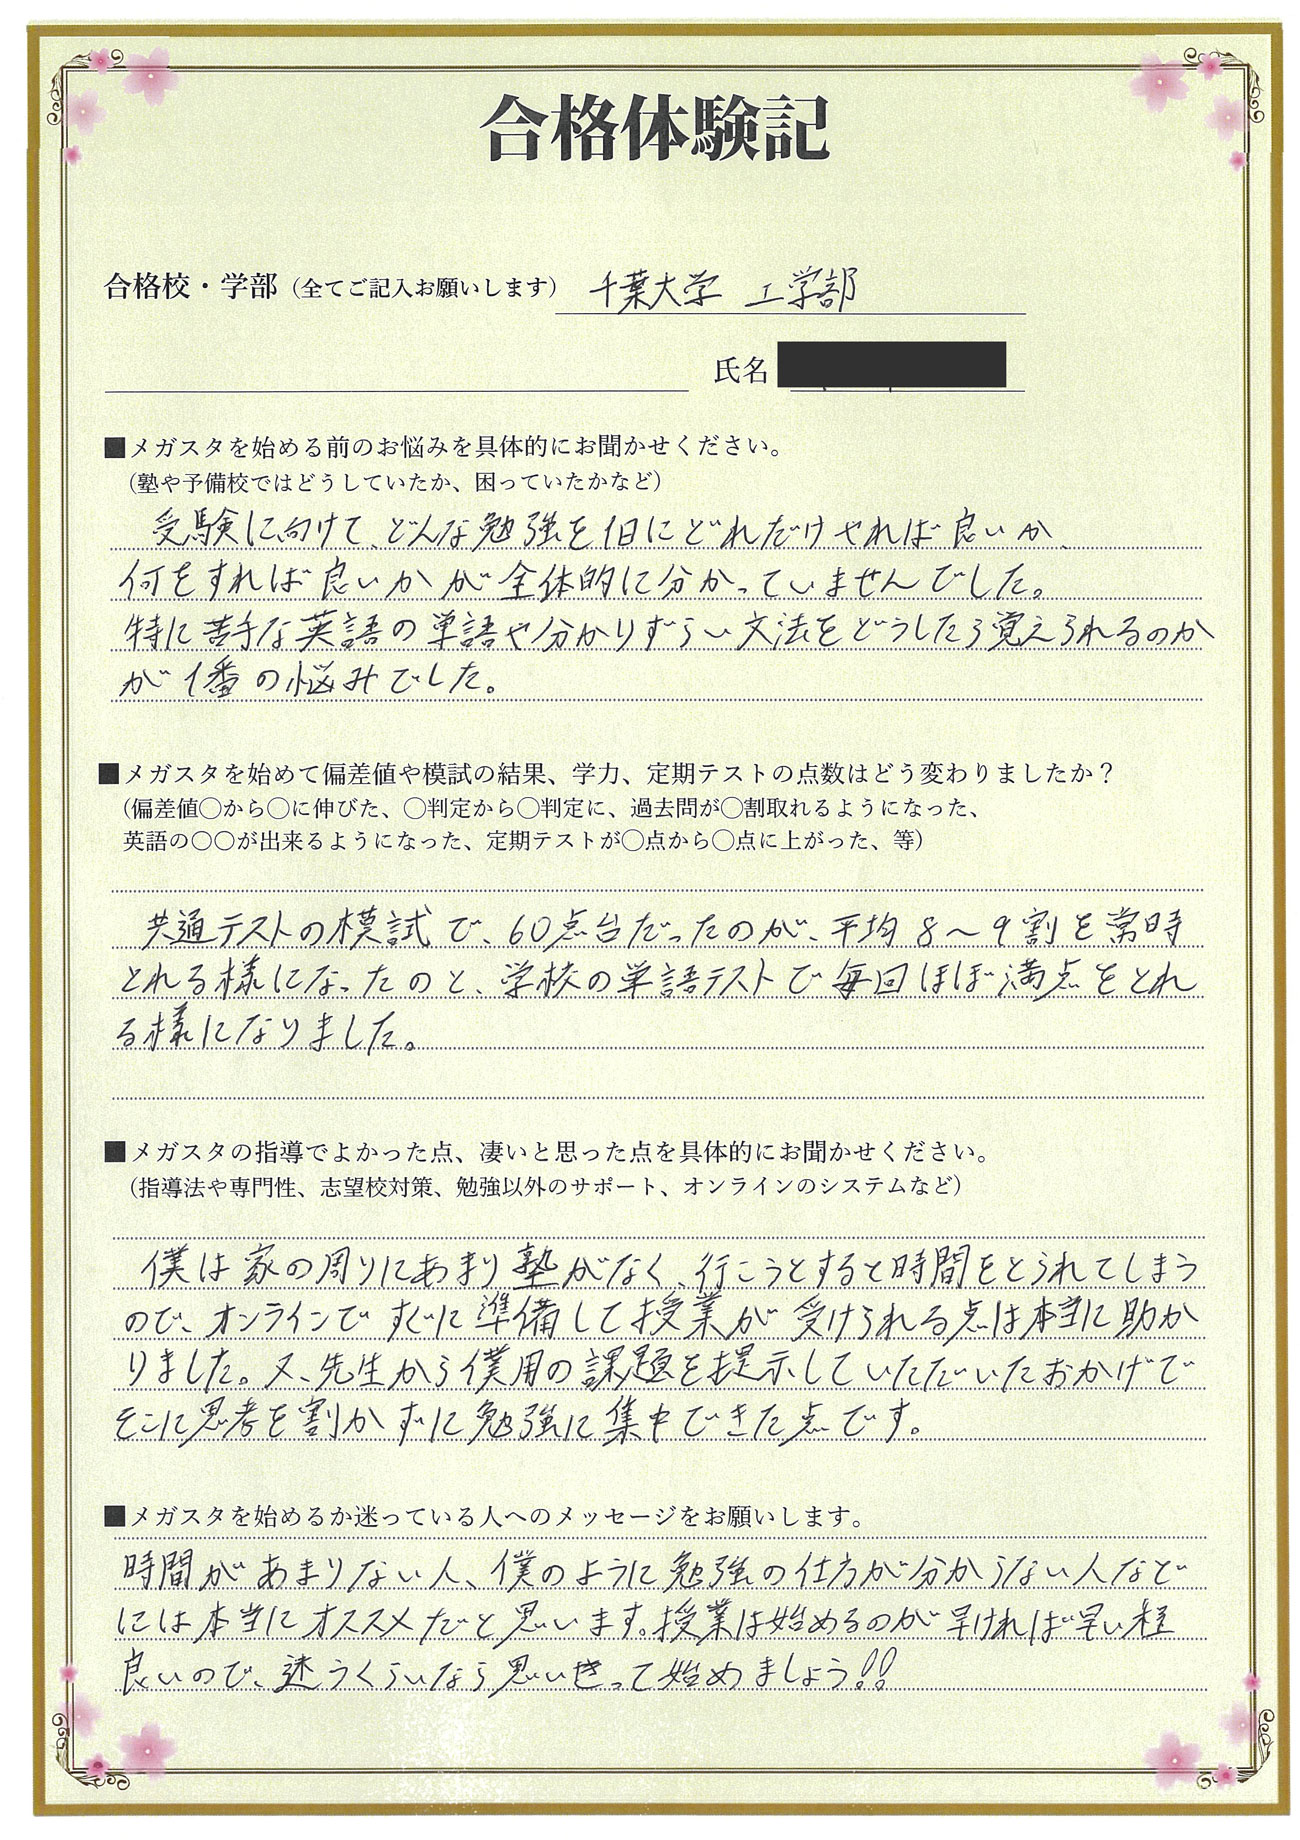 合格体験記
合格校・学部（全てご記入お願いします） 千葉大学 工学部
氏名
■メガスタを始める前のお悩みを具体的にお聞かせください。
（塾や予備校ではどうしていたか、困っていたかなど）
受験に向けて、どんな勉強を1日にどれだけやれば良いか、
何をすれば良いかが全体的に分かっていませんでした。
特に苦手な英語の単語や分かりずらい文法をどうしたら覚えられるのか
が1番の悩みでした。
■メガスタを始めて偏差値や模試の結果、学力、定期テストの点数はどう変わりましたか？
（偏差値〇から〇に伸びた、〇判定から〇判定に、過去問が〇割取れるようになった、
英語の〇〇が出来るようになった、定期テストが〇点から〇点に上がった、等）
共通テストの模試で、60点台だったのが、平均8～9割を常時
とれる様になったのと、学校の単語テストで毎回ほぼ満点をとれ
る様になりました。
■メガスタの指導でよかった点、凄いと思った点を具体的にお聞かせください。
（指導法や専門性、志望校対策、勉強以外のサポート、オンラインのシステムなど）
僕は家の周りにあまり塾がなく、行こうとすると時間をとられてしまう
ので、オンラインですぐに準備して授業が受けられる点は本当に助か
りました。又、先生から僕用の課題を提示していただいたおかげで
そこに思考を割かずに勉強に集中できた点です。
■メガスタを始めるか迷っている人へのメッセージをお願いします。
時間があまりない人、僕のように勉強の仕方が分からない人など
には本当にオススメだと思います。授業は始めるのが早ければ早い程
良いので、迷うくらいなら思いきって始めましょう!!